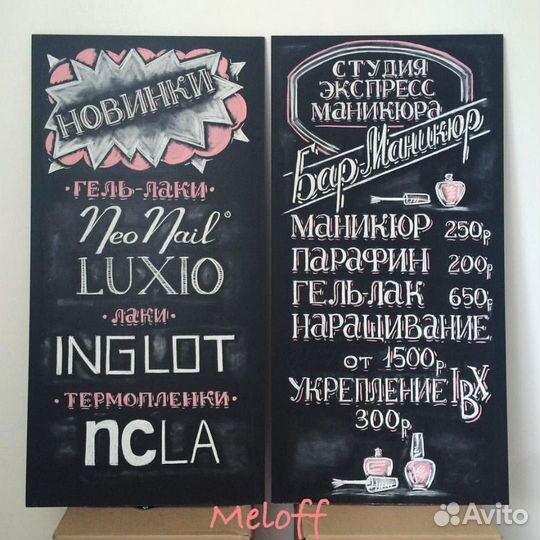 НОВИНКИ
·ГЕЛЬ-ЛАКИ·
NeoNail
LUXIO
·ЛАКИ·
INGLOT
·ТЕРМОПЛЕНКИ·
NCLA
СТУДИЯ
ЭКСПРЕСС
МАНИКЮРА
Бар-Маникюр
МАНИКЮР 250р
ПАРАФИН 200р
ГЕЛЬ-ЛАК 650р
НАРАЩИВАНИЕ
ОТ 1500р
УКРЕПЛЕНИЕ IBX
300р
Meloff
Avito